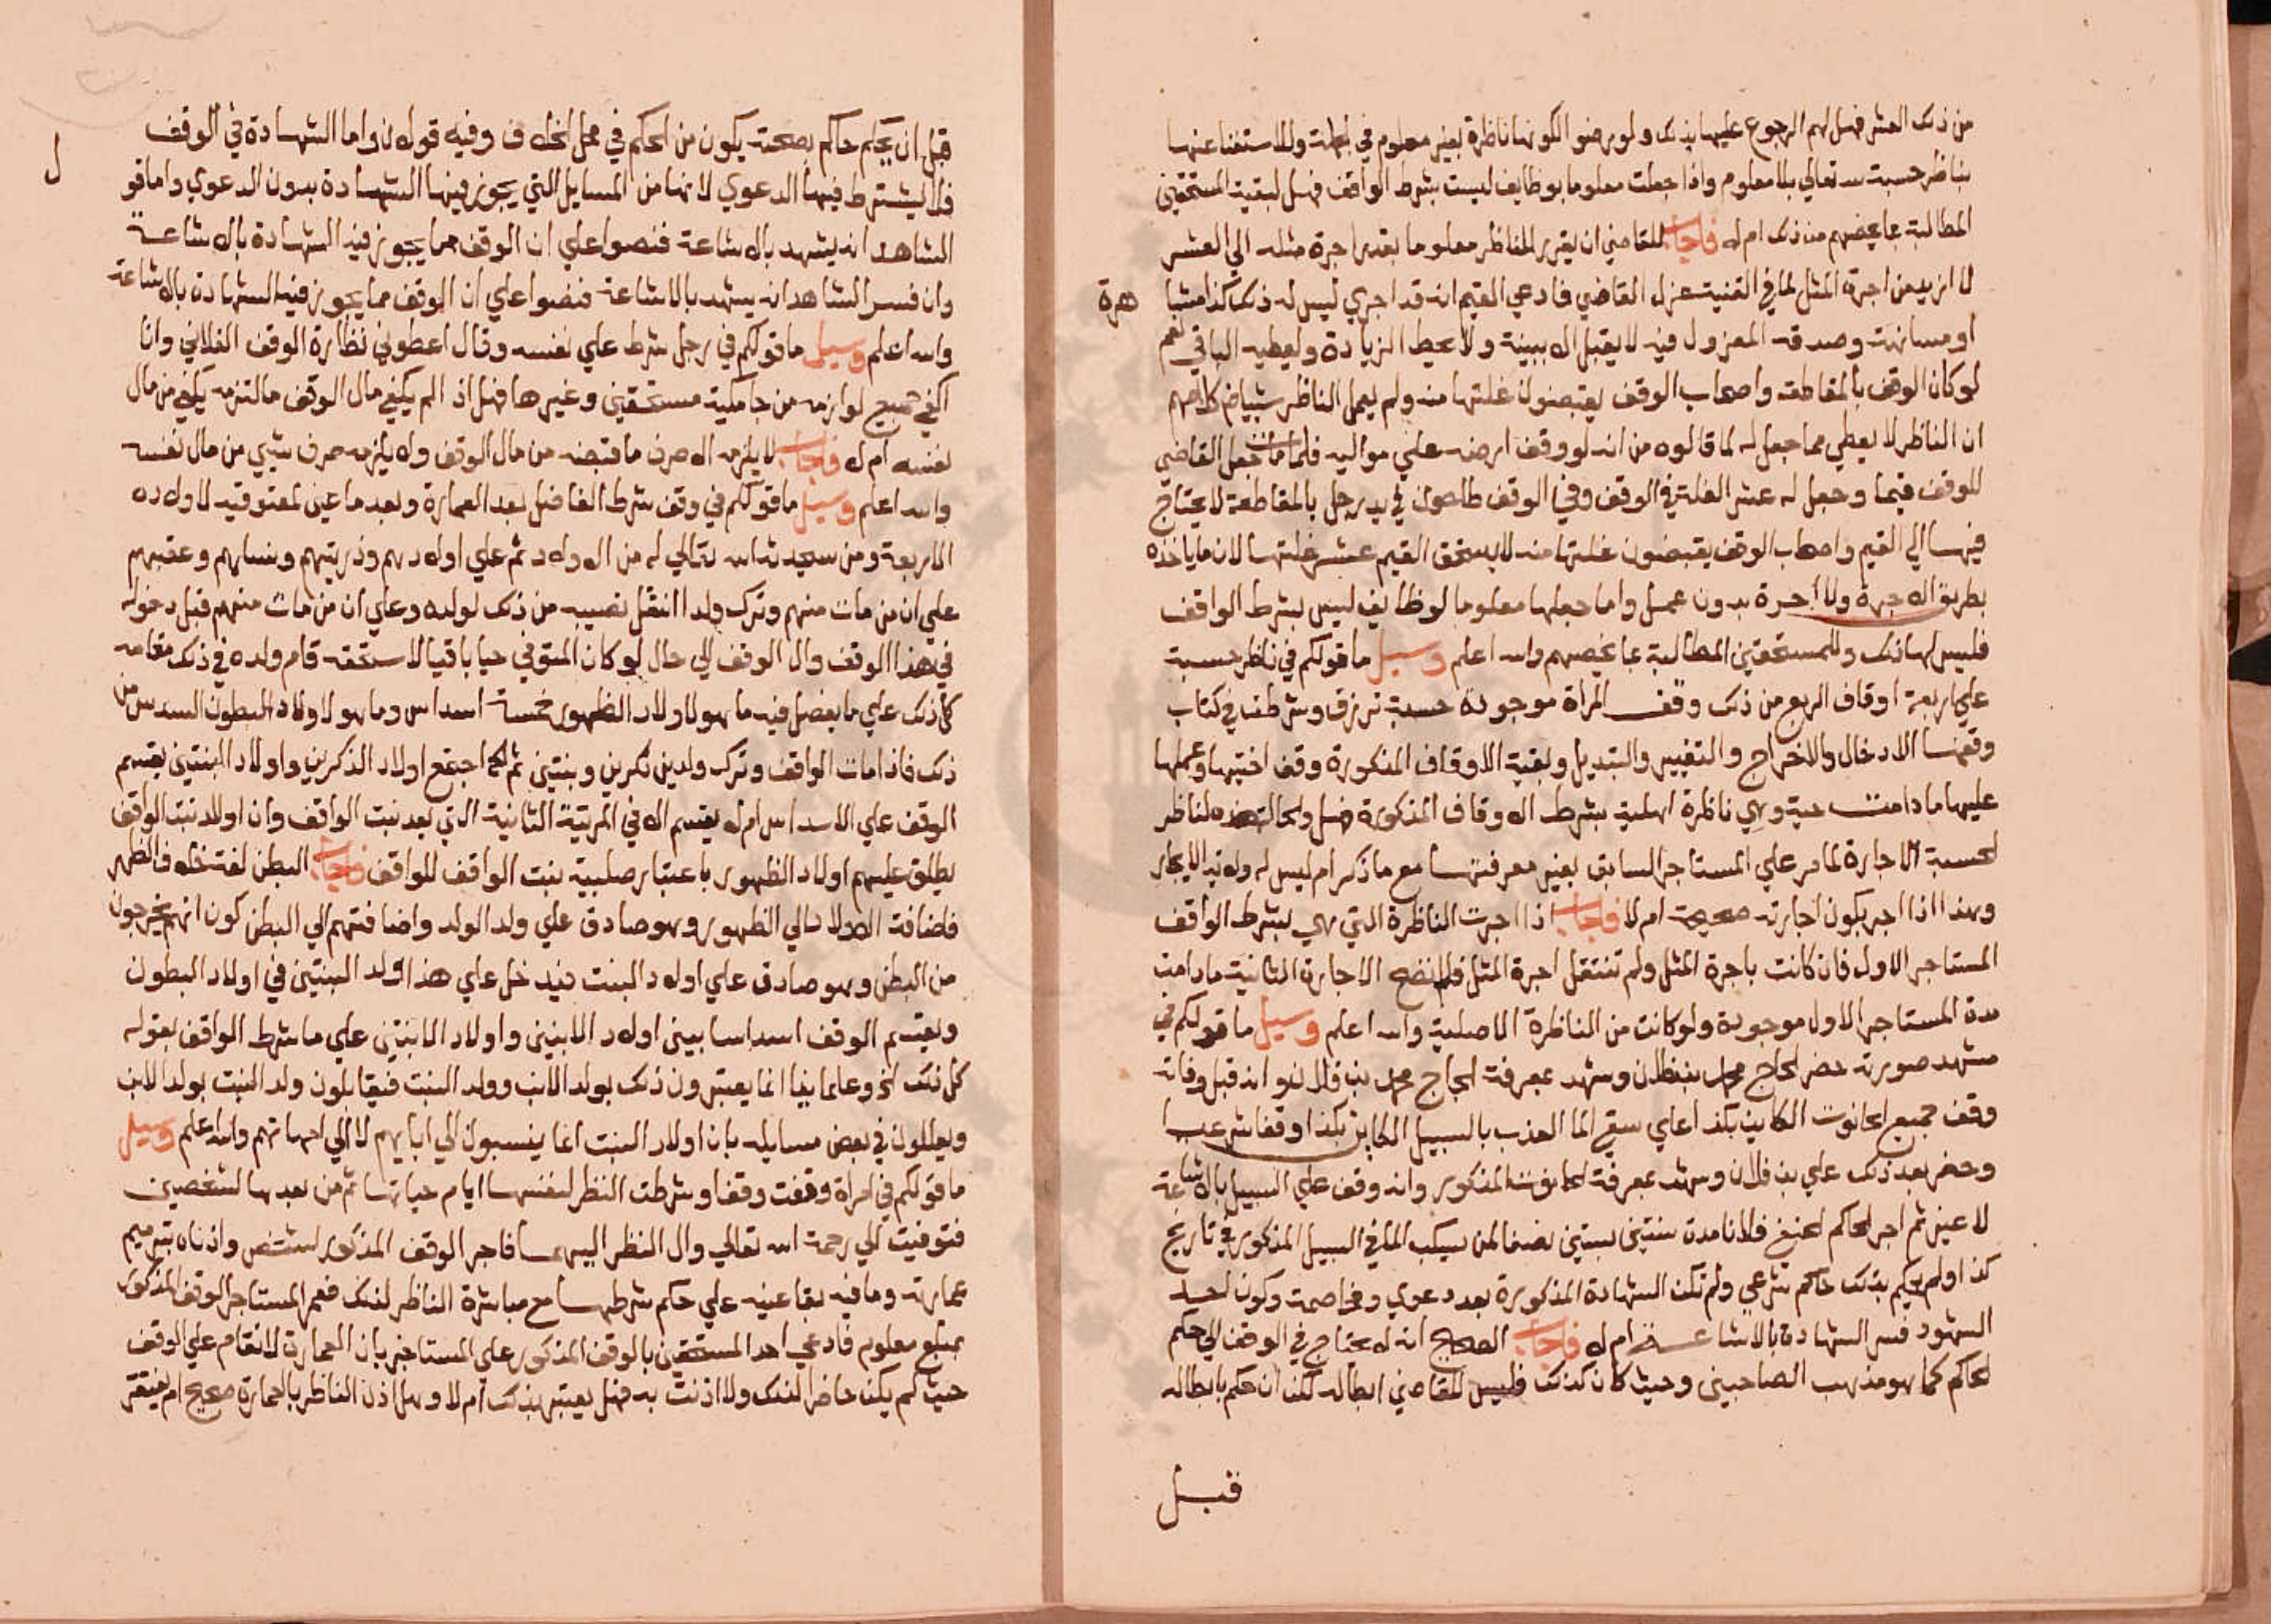 من ذلك العشر فهل لهم الرجوع عليها بذلك ولو رضوا لكونها ناظرة بغير معلوم في وللاستغنا عنها
بناظر حسبة لله تعالي بلا معلوم واذا جعلت معلوما بوظايف ليست بشرط الواقف فهل لبقية المستحقين
المطالبة بما يخصهم من ذلك ام لا فاجاب للقاضي ان يقرر للناظر معلوما بقدر اجرة مثله الي العشر
لا ازيد من اجرة المثل لما في القنية عزل القاضي فادعي القيم انه قد اجري ليس له ذلك كذا مشا
هرة
او مسانهة وصدقه المعزول فيه لا يقبل الا ببينة ولا يحط الزيادة ويعطيه الباقي نعم
لو كان الوقف بالمقاطعه واصحاب الوقف يقبضون غلتها منه ولم يعمل الناظر شيا
ان الناظر لا يعطي مما جعل له لما قالوه من انه لو وقف ارضه علي مواليه فلما مات جعل القاضي
للوقف قيما وجعل له عشر الغلة في الوقف وفي الوقف طاحون في يد رجل بالمقاطعة لا يحتاج
فيها الي القيم واصحاب الوقف يقبضون غلتها منه لا يستحق القيم عشر غلتها لان ما ياخذه
بطريق الاجرة ولا اجرة بدون عمل واما جعلها معلوما لوظايف ليس بشرط الواقف
فليس لها ذلك وللمستحقين المطالبة بما يخصهم والله اعلم وسيل ما قولكم في ناظر حسبة
علي اربعة اوقاف الربع من ذلك وقف المراة موجودة ترزق وشرطت في كتاب
وقفها الادخال والاخراج والتغيير والتبديل وبقية الاوقاف المذكورة وقف اختيها وعملها
عليها ما دامت حية وهي ناظرة اهلية بشرط الاوقاف المذكورة فهل والحالة هذه لناظر
الحسبة الاجارة لما مر علي المستاجر السابق بغير معرفتها مع ما ذكر ام ليس له ولاية الايجار
وهذا اذا اجر يكون اجارته صحيحة ام لا فاجاب اذا اجرت الناظرة التي هي بشرط الواقف
المستاجر الاول فان كانت باجرة المثل ولم تنتقل اجرة المثل فلا تصح الاجارة الثانية ما دامت
مدة المستاجر الاول موجودة ولو كانت من الناظرة الاصلية والله اعلم وسيل ما قولكم في
مشهد صورته حضر الحاج محمد بن فلان وشهد بمعرفة الحاج محمد بن فلان وانه قبل وفاته
وقف جميع الحانوت الكاين بكذا علي سقي الما العذب بالسبيل الكاين بكذا وقفا شرعيا
وحضر بعد ذلك علي بن فلان وشهد بمعرفة الحانوت المذكور وانه وقف علي السبيل بالاشاعة
لا غير ثم اجر الحاكم الحنفي فلانا مدة سنتين بستين نصفا لمن يسكب الما في السبيل المذكور في تاريخ
كذا ولم يحكم بذلك حاكم شرعي ولم تكن الشهادة المذكورة بعد دعوي ومخاصمة وكون احد
الشهود فسر الشهادة بالاشاعة ام لا فاجاب الصحيح انه لا يحتاج في الوقف الي حكم
الحاكم كما هو مذهب الصاحبين وحيث كان كذلك فليس للقاضي ابطاله لكن ان حكم بابطاله
قبل
قبل ان يحكم حاكم بصحته يكون من الحكم في محل الخلاف وفيه قولان واما الشهادة في الوقف
فلا يشترط فيها الدعوي لانها من المسايل التي يجوز فيها الشهادة بدون الدعوي واما قو
ل
الشاهد انه يشهد بالاشاعة فنصوا علي ان الوقف مما يجوز فيه الشهادة بالاشاعة
وان فسر الشاهد انه يشهد بالاشاعة فنصوا علي ان الوقف مما يجوز فيه الشهادة بالاشاعة
والله اعلم وسيل ما قولكم في رجل شرط علي نفسه وقال اعطوني نظارة الوقف الفلاني وانا
اكفي جميع لوازمه من جامكية مستحقين وغيرها فهل اذا لم يكفي مال الوقف ما التزمه يكفي من مال
نفسه ام لا فاجاب لا يلزمه الا صرف ما قبضه من مال الوقف ولا يلزمه صرف شي من مال نفسه
والله اعلم وسيل ما قولكم في وقف شرط الفاضل بعد العمارة وبعد ما عين لمعتوقيه لاولاده
الاربعة ومن سيحدثه الله تعالي له من الاولاد ثم علي اولادهم وذريتهم ونسلهم وعقبهم
علي ان من مات منهم وترك ولدا انتقل نصيبه من ذلك لولده وعلي ان من مات منهم قبل دخوله
في هذا الوقف وال الوقف الي حال لو كان المتوفي حيا باقيا لاستحقه قام ولده في ذلك مقامه
كل ذلك علي ما يفصل فيه ما هو لاولاد الظهور خمسة اسداس وما هو لاولاد البطون السدس من
ذلك فاذا مات الواقف وترك ولدين ذكرين وبنتين ثم اجتمع اولاد الذكرين واولاد البنتين يقسم
الوقف علي الاسداس ام لا يقسم الا في المرتبة الثانية التي بعد بنت الواقف وان اولاد بنت الواقف
يطلق عليهم اولاد الظهور باعتبار صلبية بنت الواقف للواقف فاجاب البطن لغة خلاف الظهر
فاضافة الاولاد الي الظهور وهو صادق علي ولد الولد واضافتهم الي البطن كون انهم يخرجون
من البطن وهو صادق علي اولاد البنت فيدخل علي هذا ولد البنتين في اولاد البطون
ويقسم الوقف اسداسا بين اولاد الابنين واولاد الابنتين علي ما شرط الواقف بقوله
كل ذلك الخ وعلماينا انما يعتبرون ذلك بولد الابن وولد البنت فيقابلون ولد البنت بولد الابن
ويعللون في بعض مسايله بان اولاد البنت انما ينسبون الي ابايهم لا الي امهاتهم والله اعلم وسيل
ما قولكم في امراة وقفت وقفا وشرطت النظر لنفسها ايام حياتها ثم من بعدها لشخصين
فتوفيت الي رحمة الله تعالي وال النظر اليهما فاجر الوقف المذكور لشخص واذناه بترميم
عمارته وما فيه بقا عينه علي حكم شرطها مع مباشرة الناظر لذلك فعمر المستاجر الوقف المذكور
بمبلغ معلوم فادعي احد المستحقين بالوقف المذكور علي المستاجر بان العمارة لا تقام علي الوقف
حيث لم يكن حاضرا لذلك ولا اذنت به فهل يعتبر بذلك ام لا وهل اذن الناظر بالعمارة صحيح ام يفتقر